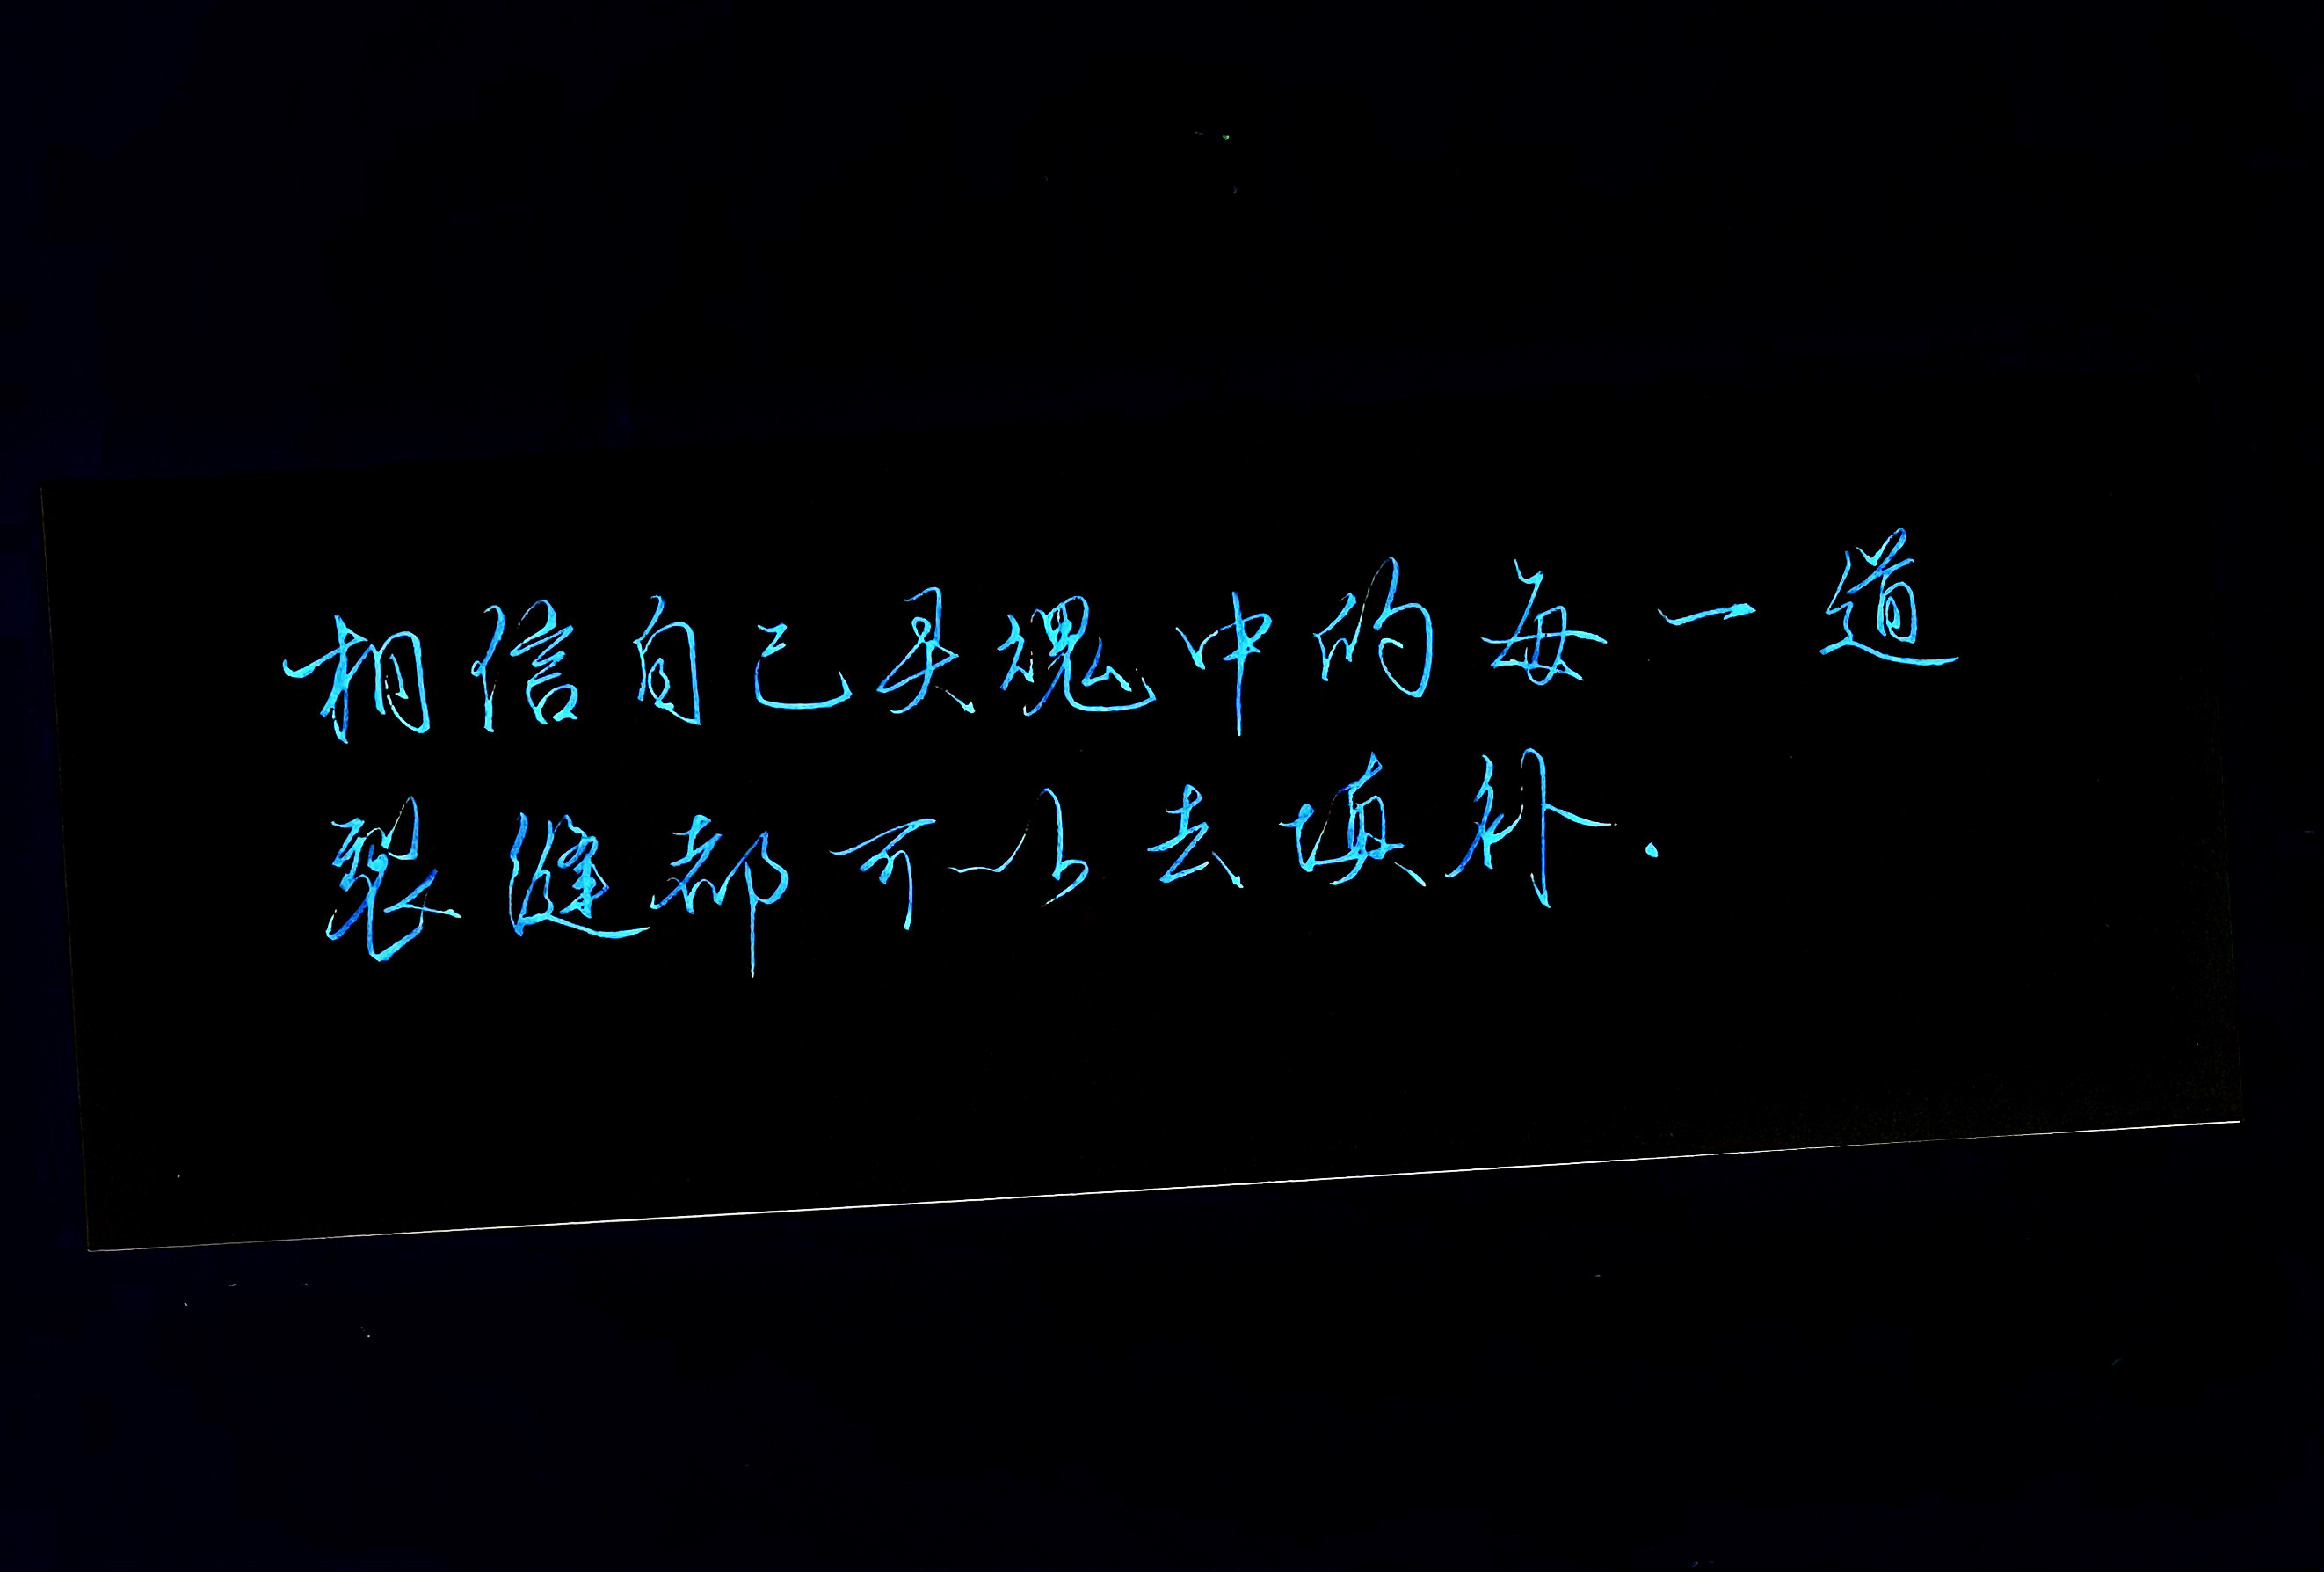 相信自己灵魂中的每一道
裂缝都可以去填补.